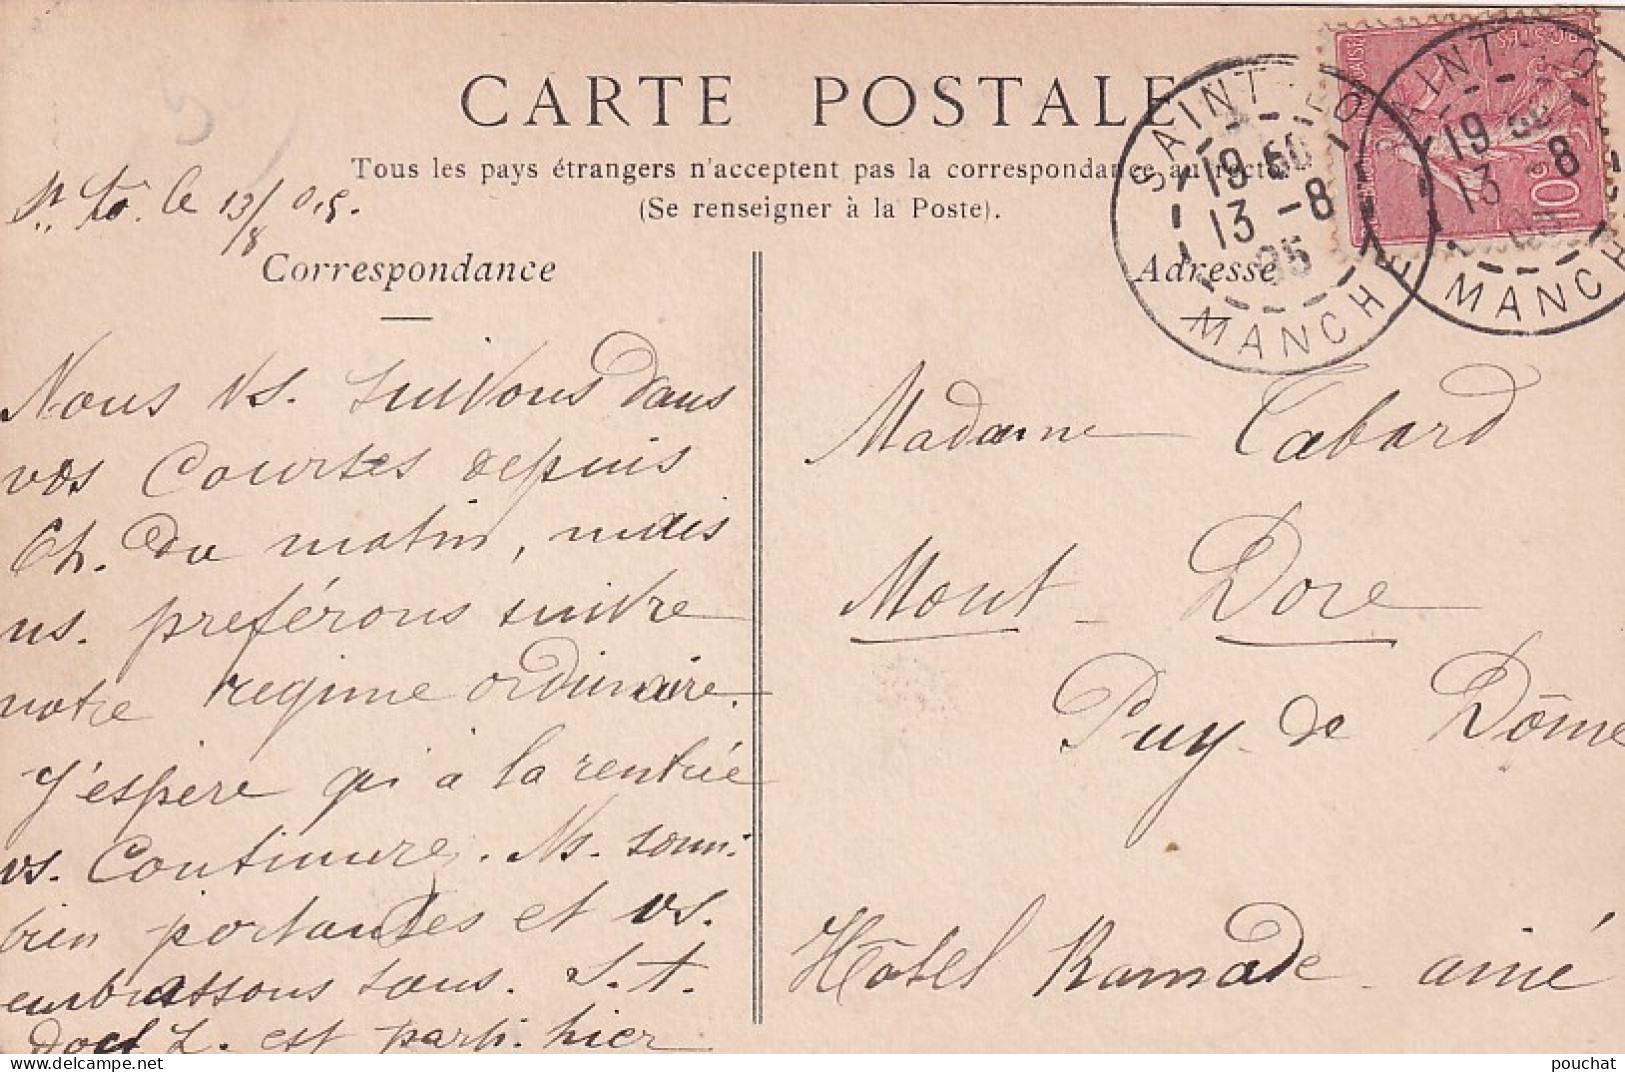 CARTE POSTALE
Tous les pays étrangers n'acceptent pas la correspondance au recto
(Se renseigner à la Poste).
St Lô. le 13/8 05.
Correspondance
Adresse
SAINT-LO
19 30
13 -8
05
MANCHE
SAINT-LO
19 30
13 -8
MANCHE
POSTES
10
Nous vs. suivons dans
vos courses depuis
Ch. du matin, mais
ns. préférons suivre
notre régime ordinaire.
J'espère qu'à la rentrée
vs. continuere. Ns. sommes
bien portantes et vs.
embrassons tous. S. t.
doct L. est parti hier
Madame Tabard
Mont-Dore
Puy-de Dôme
Hôtel Ramade ainé
pouchat